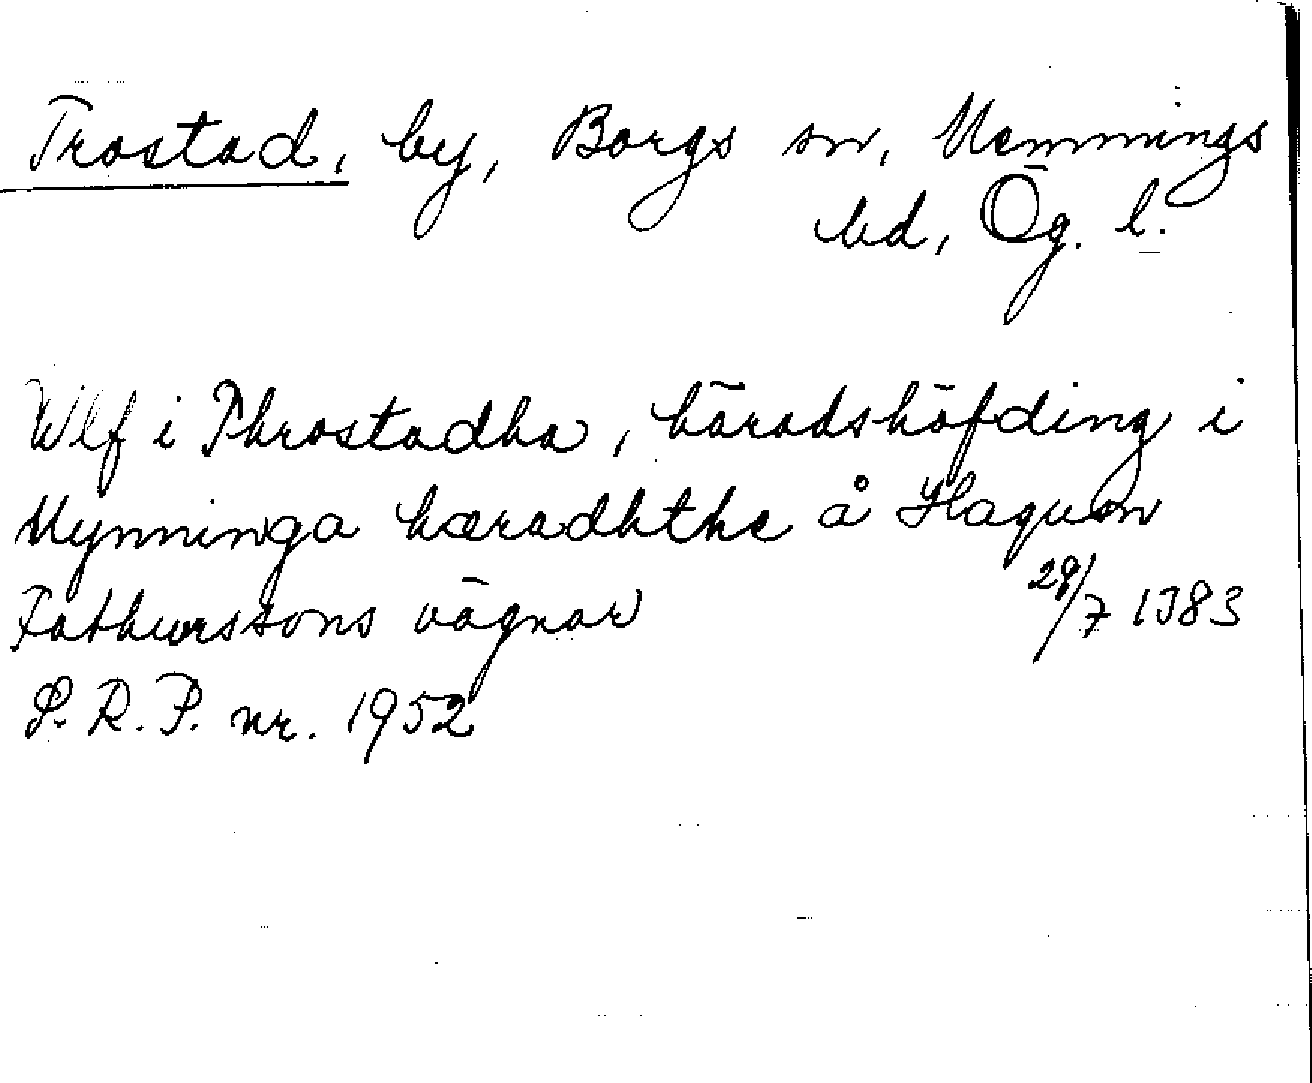 Trostad, by, Borgs sn, Memmings
hd, Ög. l.
Wlf i Throstadha, häradshöfding i
Mynninga hæradhthe å Haquon
Fathurssons vägnar 29/7 1383
S. R. P. nr. 1952